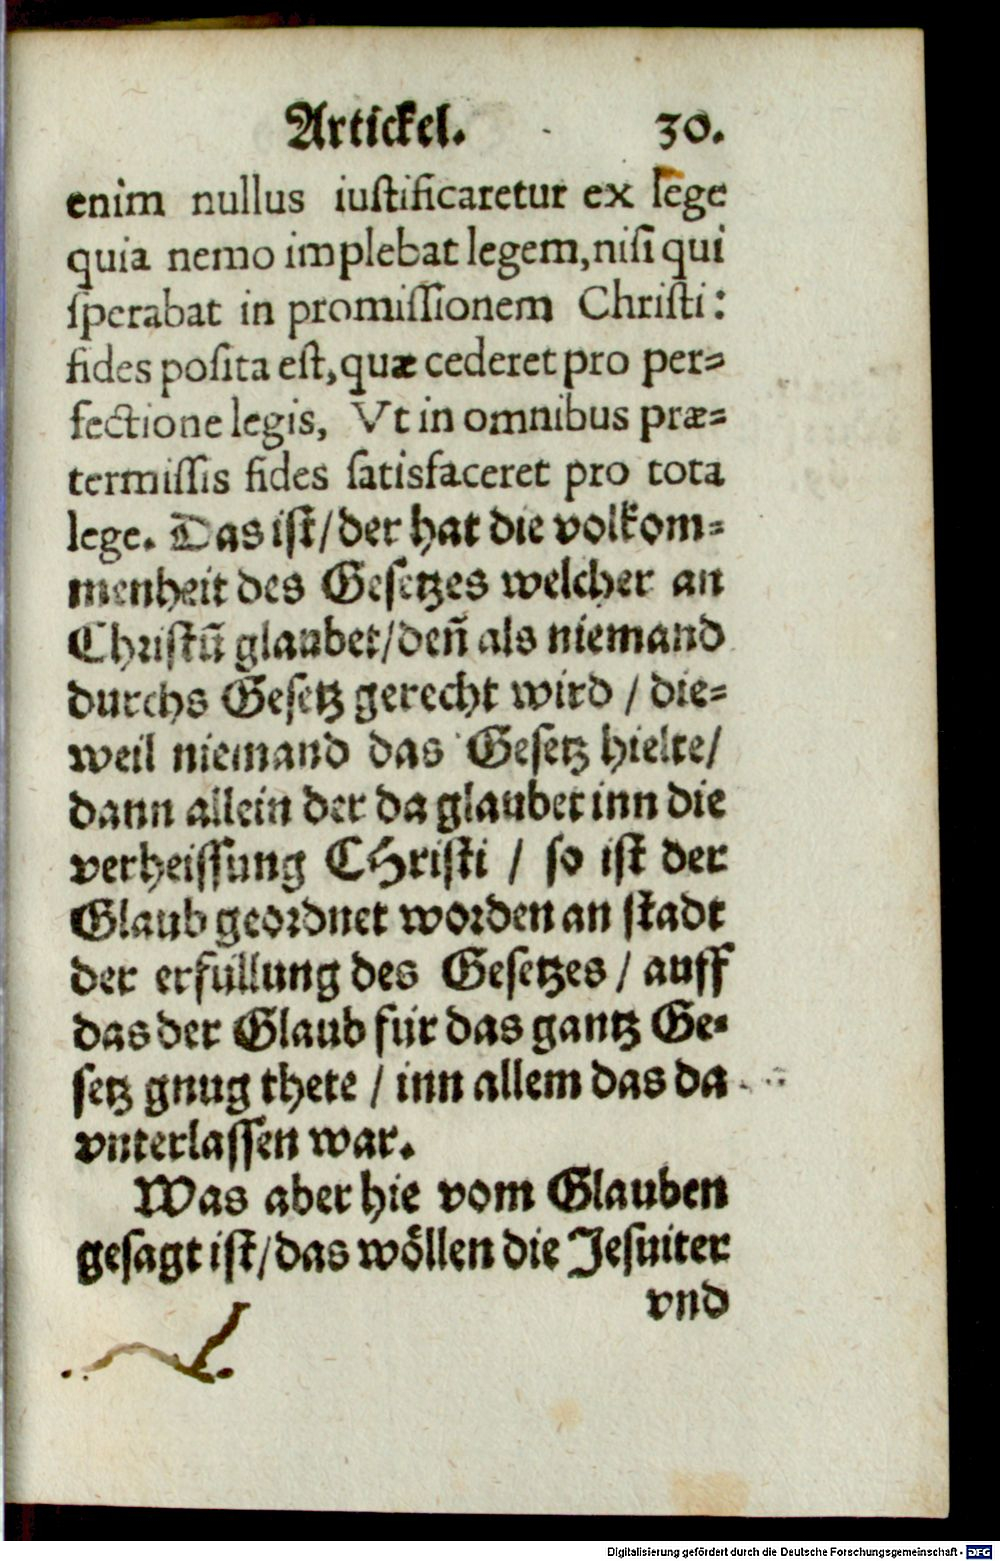 Artickel. 30.
enim nullus iuſtificaretur ex lege
quia nemo implebat legem, niſi qui
ſperabat in promiſſionem Chriſti:
fides poſita eſt, quæ cederet pro per⸗
fectione legis, Vt in omnibus præ⸗
termiſſis fides ſatisfaceret pro tota
lege. Das iſt/der hat die volkom⸗
menheit des Geſetzes welcher an
Chriſtũ glaubet/den̄ als niemand
durchs Geſetz gerecht wird / die⸗
weil niemand das Geſetz hielte/
dann allein der da glaubet inn die
verheiſſung CHriſti / ſo iſt der
Glaub geordnet worden an ſtadt
der erfüllung des Geſetzes / auff
das der Glaub für das gantz Ge⸗
ſetz gnug thete / inn allem das da
vnterlaſſen war.
Was aber hie vom Glauben
geſagt iſt/das wöllen die Jeſuiter
vnd
Digitalisierung gefördert durch die Deutsche Forschungsgemeinschaft - DFG